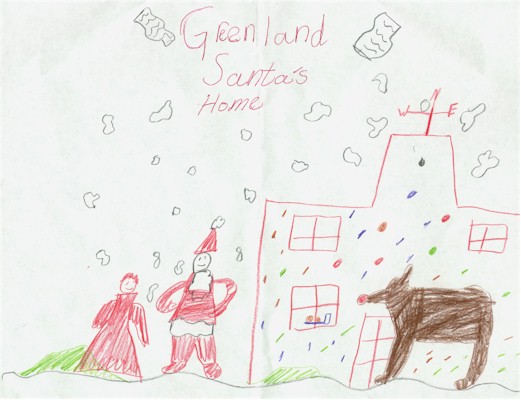 Greenland
Santa's
Home
W E